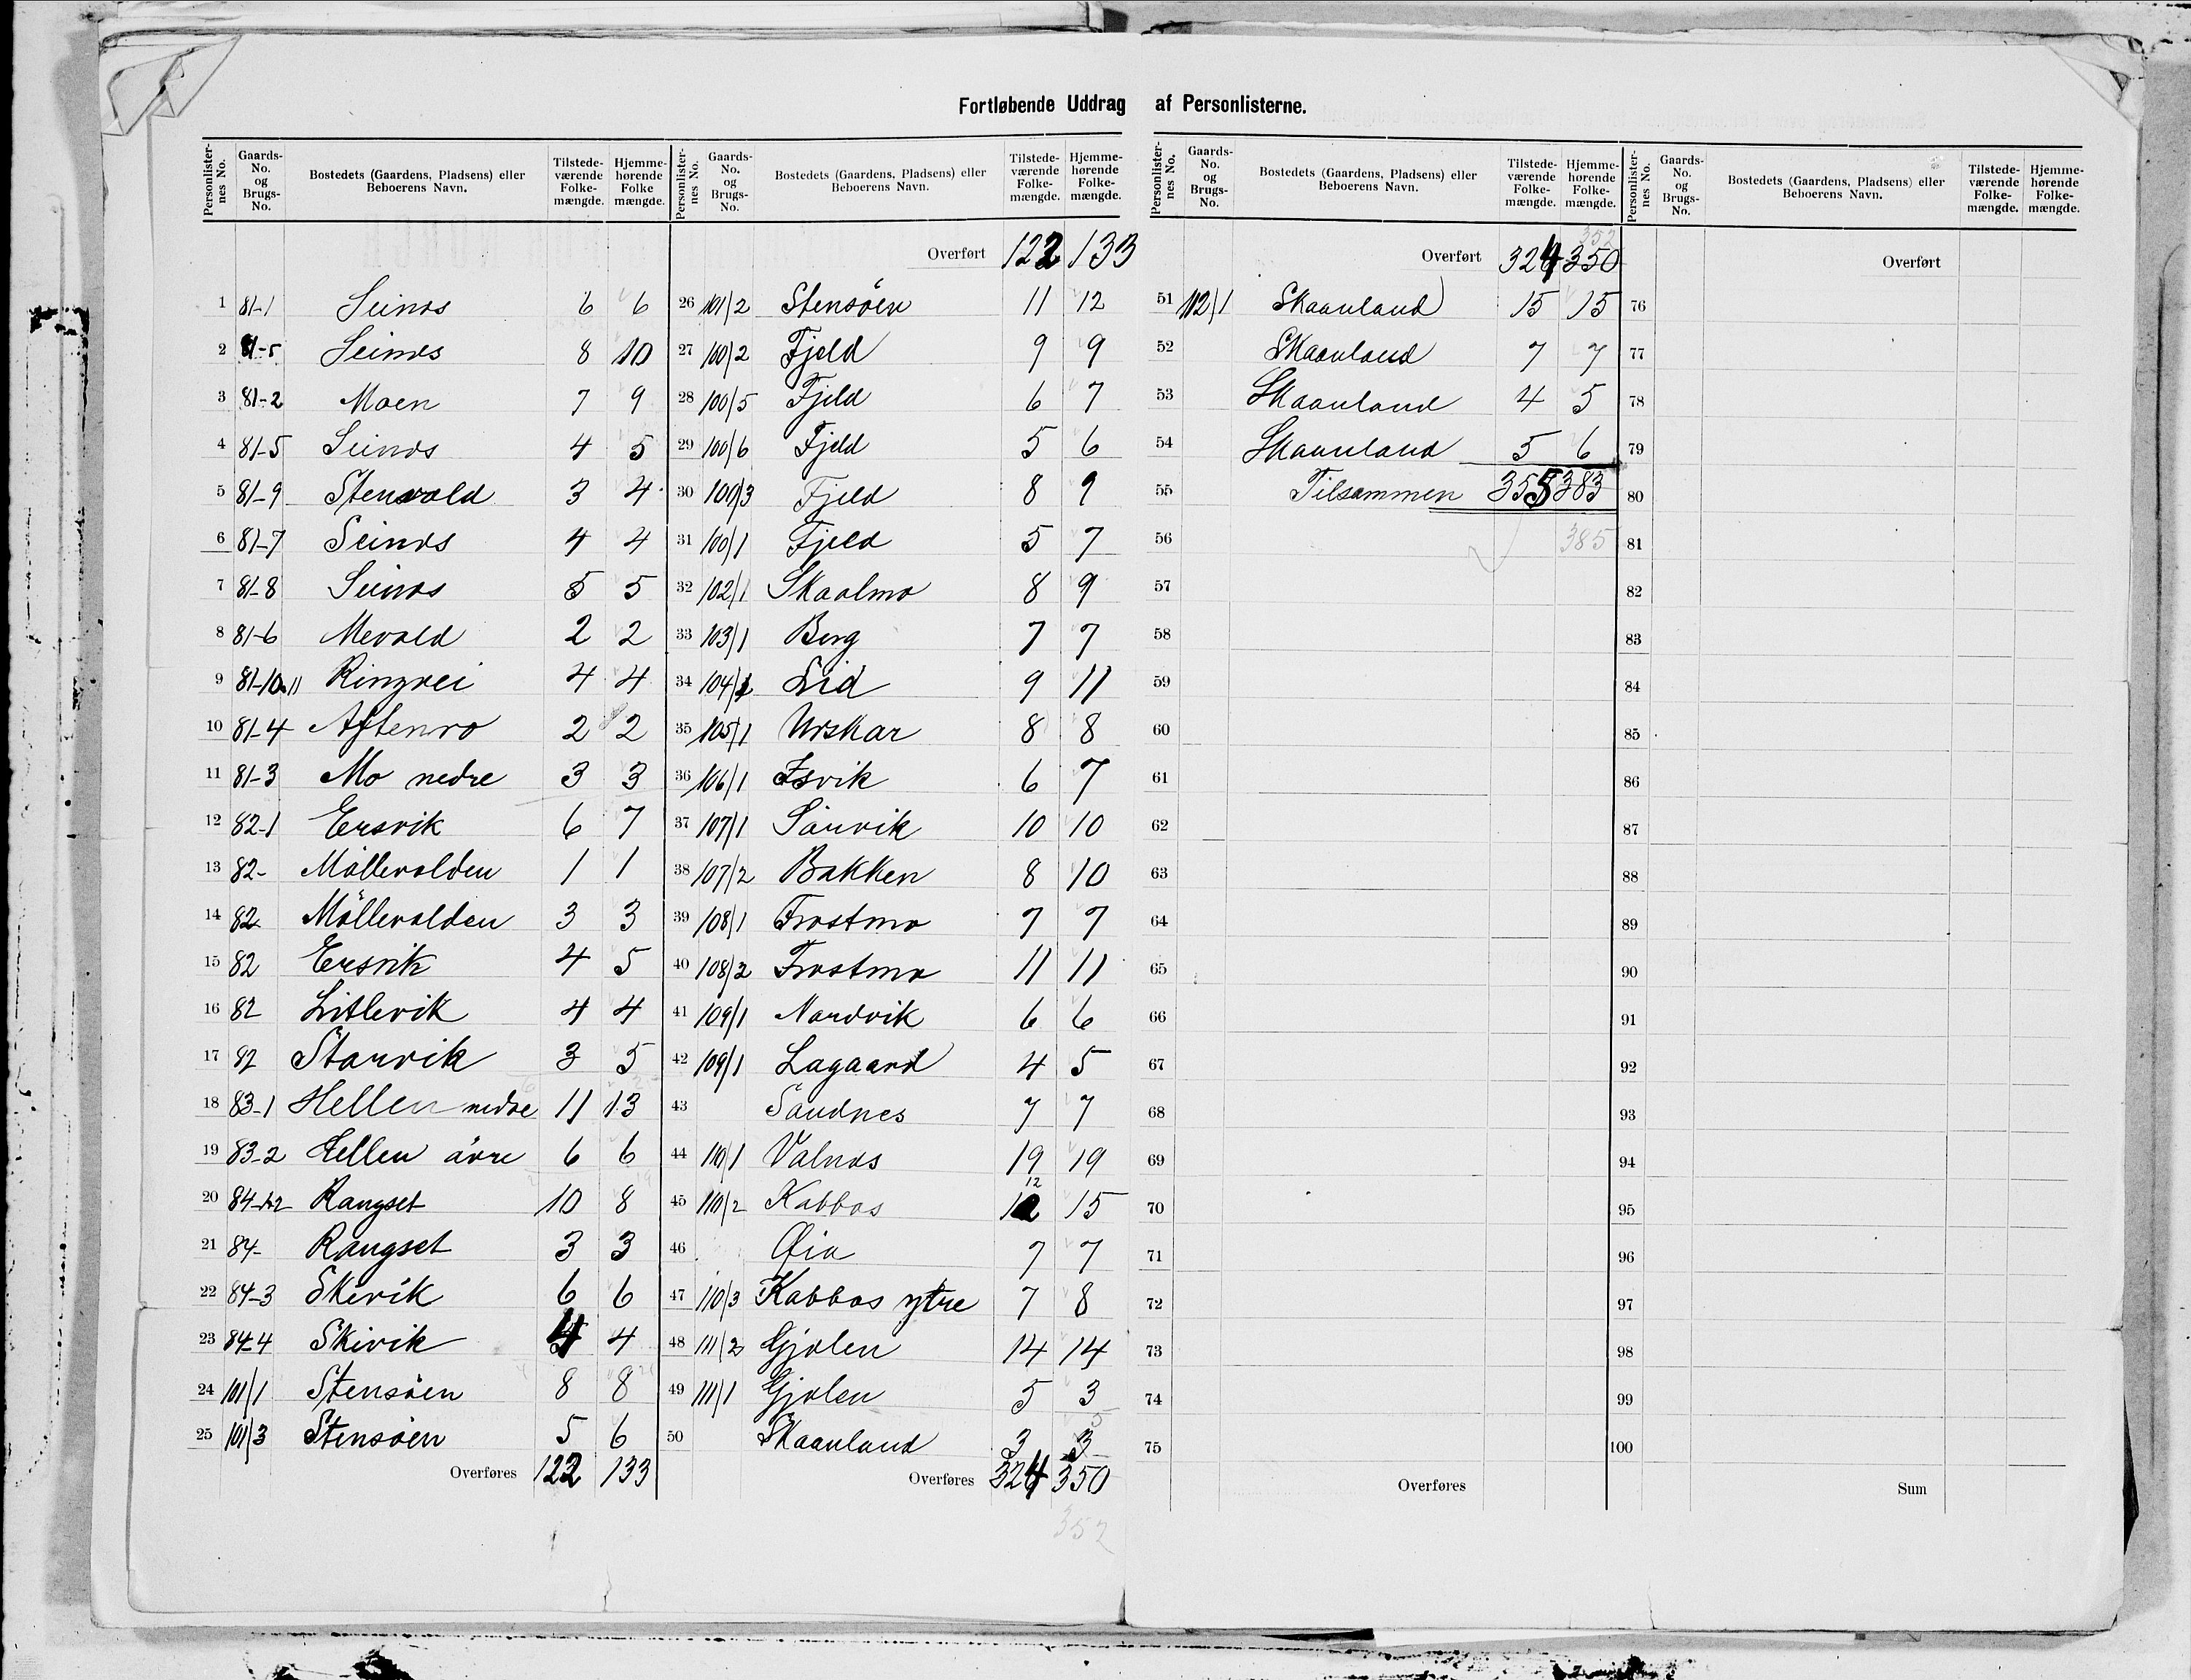 Fortløbende Uddrag af Personlisterne.
Personlister-nes No. Gaards-No. og Brugs-No. Bostedets (Gaardens, Pladsens) eller Beboerens Navn. Tilstede-værende Folke-mængde. Hjemme-hørende Folke mængde.
1 81-1 Seines 6 6
2 81-5 Seines 8 10
3 81-2 Moen 7 9
4 81-5 Seines 4 5
5 81-9 Stenvold 3 4
6 81-7 Seines 4 4
7 81-8 Seines 5 5
8 81-6 Mevold 2 2
9 81-10.11 Ringvei 4 4
10 81-4 Aftenro 2 2
11 81-3 Mo nedre 3 3
12 82-1 Ersvik 6 7
13 82- Möllevolden 1 1
14 82 Möllevolden 3 3
15 82 Ersvik 4 5
16 82 Litlevik 4 4
17 82 Storvik 3 5
18 83-1 Hellen nedre 11 13
19 83-2 Hellen övre 6 6
20 84-1.2 Rangset 10 8
21 84- Rangset 3 3
22 84-3 Skivik 6 6
23 84-4 Skivik 4 4
24 101/1 Stensöen 8 8
25 101/3 Stensöen 5 6
Overføres 122 133
Personlister-nes No. Gaards-No. og Brugs-No. Bostedets (Gaardens, Pladsens) eller Beboerens Navn. Tilstede-værende Folke-mængde. Hjemme-hørende Folke-mængde.
Overført 122 133
26 101/2 Stensöen 11 12
27 100/2 Fjeld 9 9
28 100/5 Fjeld 6 7
29 100/6 Fjeld 5 6
30 100/3 Fjeld 8 9
31 100/1 Fjeld 5 7
32 102/1 Skaalmo 8 9
33 103/1 Berg 7 7
34 104/1 Lid 9 11
35 105/1 Urskar 8 8
36 106/1 Isvik 6 7
37 107/1 Sörvik 10 10
38 107/2 Bakken 8 10
39 108/1 Frostmo 7 7
40 108/2 Frostmo 11 11
41 109/1 Nordvik 6 6
42 109/1 Lagaard 4 5
43 Sandnes 7 7
44 110/1 Valnes 19 19
12
45 110/2 Kobbos 12 15
46 Øia 7 7
47 110/3 Kobbos ytre 7 8
48 111/2 Gjölen 14 14
49 111/1 Gjölen 5 3
5
50 Skaanland 3 3
Overføres 324 350
352
Personlister-nes No. Gaards-No. og Brugs-No. Bostedets (Gaardens, Pladsens) eller Beboerens Navn. Tilstede-værende Folke-mængde. Hjemme-hørende Folke-mængde.
352
Overført 324 350
51 112/1 Skaanland 15 15
52 Skaanland 7 7
53 Skaanland 4 5
54 Skaanland 5 6
55 Tilsammen 355 383
56 385
57
58
59
60
61
62
63
64
65
66
67
68
69
70
71
72
73
74
75
Overføres
Personlister-nes No. Gaards-No. og Brugs-No. Bostedets (Gaardens, Pladsens) eller Beboerens Navn. Tilstede-værende Folke-mængde. Hjemme-hørende Folke-mængde.
Overført
76
77
78
79
80
81
82
83
84
85
86
87
88
89
90
91
92
93
94
95
96
97
98
99
100
Sum